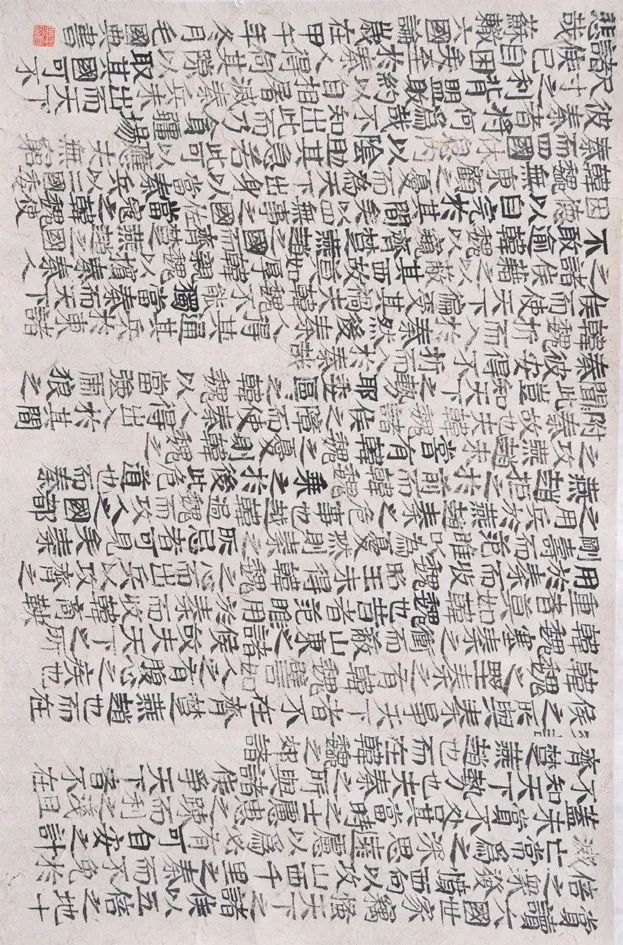 嘗讀六國世家竊怪天下之諸侯以五倍之地十
倍之眾發憤西向以攻山西千里之秦而不免於
滅亡常為之深思遠慮以為必有可以自安之計
蓋未嘗不咎其當時之士慮患之疏而見利之淺且
不知天下之勢也夫秦之所與諸侯爭天下者不在
齊楚燕趙也而在韓魏之郊諸
侯之所與秦爭天下者不在齊楚燕趙也而在
韓魏之野秦之有韓魏譬如人之有腹心之疾也
韓魏塞秦之衝而蔽山東之諸侯故夫天下之所
重者莫如韓魏也昔者范雎用於秦而收韓商鞅
用於秦而收魏昭王未得韓魏之心而出兵以攻齊之
剛壽而范雎以為憂然則秦之所忌者可見矣秦
之用兵於燕趙秦之危事也越韓過魏而攻人之國都
燕趙拒之於前而韓魏乘之於後此危道也而秦
之攻燕趙未嘗有韓魏之憂則韓魏之
附秦故也夫韓魏諸侯之障而使秦人得出入於其
間此豈知天下之勢耶委區區之韓魏以當強虎狼之
秦彼安得不折而入於秦哉
韓魏折而入於秦然後秦人得通其兵於東諸
侯而使天下遍受其禍夫韓魏不能獨當秦而天下
之諸侯藉之以蔽其西故莫如厚韓親魏以擯秦秦人
不敢逾韓魏以窺齊楚燕趙之國而齊楚燕趙之國
因得以自完於其間矣以四無事之國佐當寇之韓魏使
韓魏無東顧之憂而為天下出身以當秦兵以二國委
秦而四國休息於內以陰助其急若此可以應夫無窮
彼秦者將何為哉不知出此而乃貪疆場
尺寸之利背盟敗約以自相屠滅秦兵未出而天下
諸侯已自困矣至於秦人得伺其隙以取其國可不
悲哉蘇轍六國論歲在甲午年冬月毛國典書